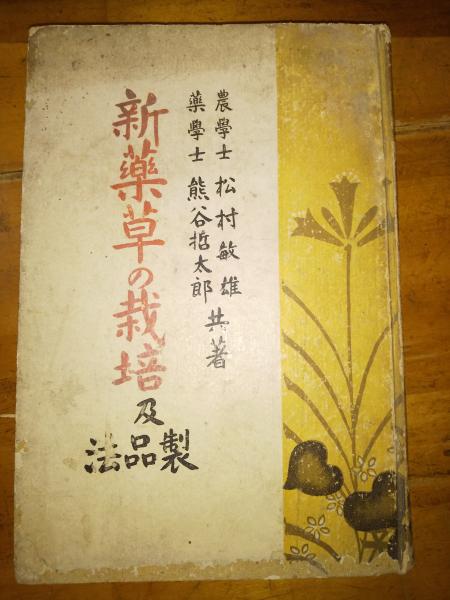 農學士 松村敏雄
藥學士 熊谷哲太郎 共著
新藥草の栽培
及
製品法